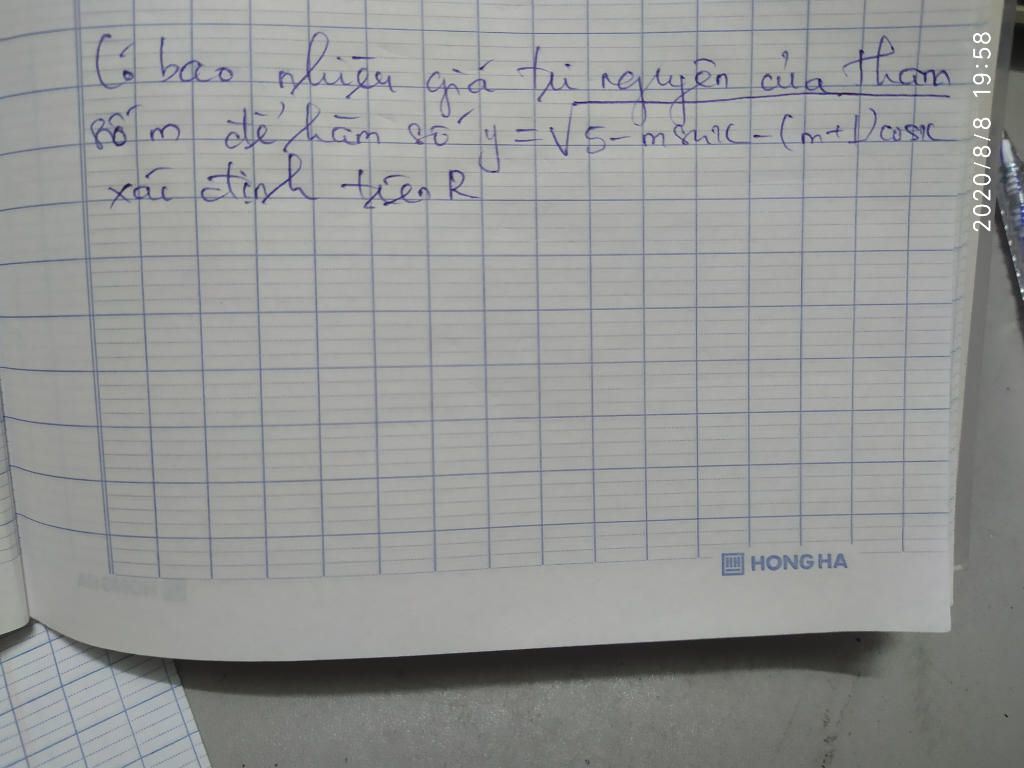 Có bao nhiêu giá trị nguyên của tham
số m để hàm số y = √5 - msinx - (m+1)cosx
xác định trên R
2020/8/8 19:58
HH HONG HA